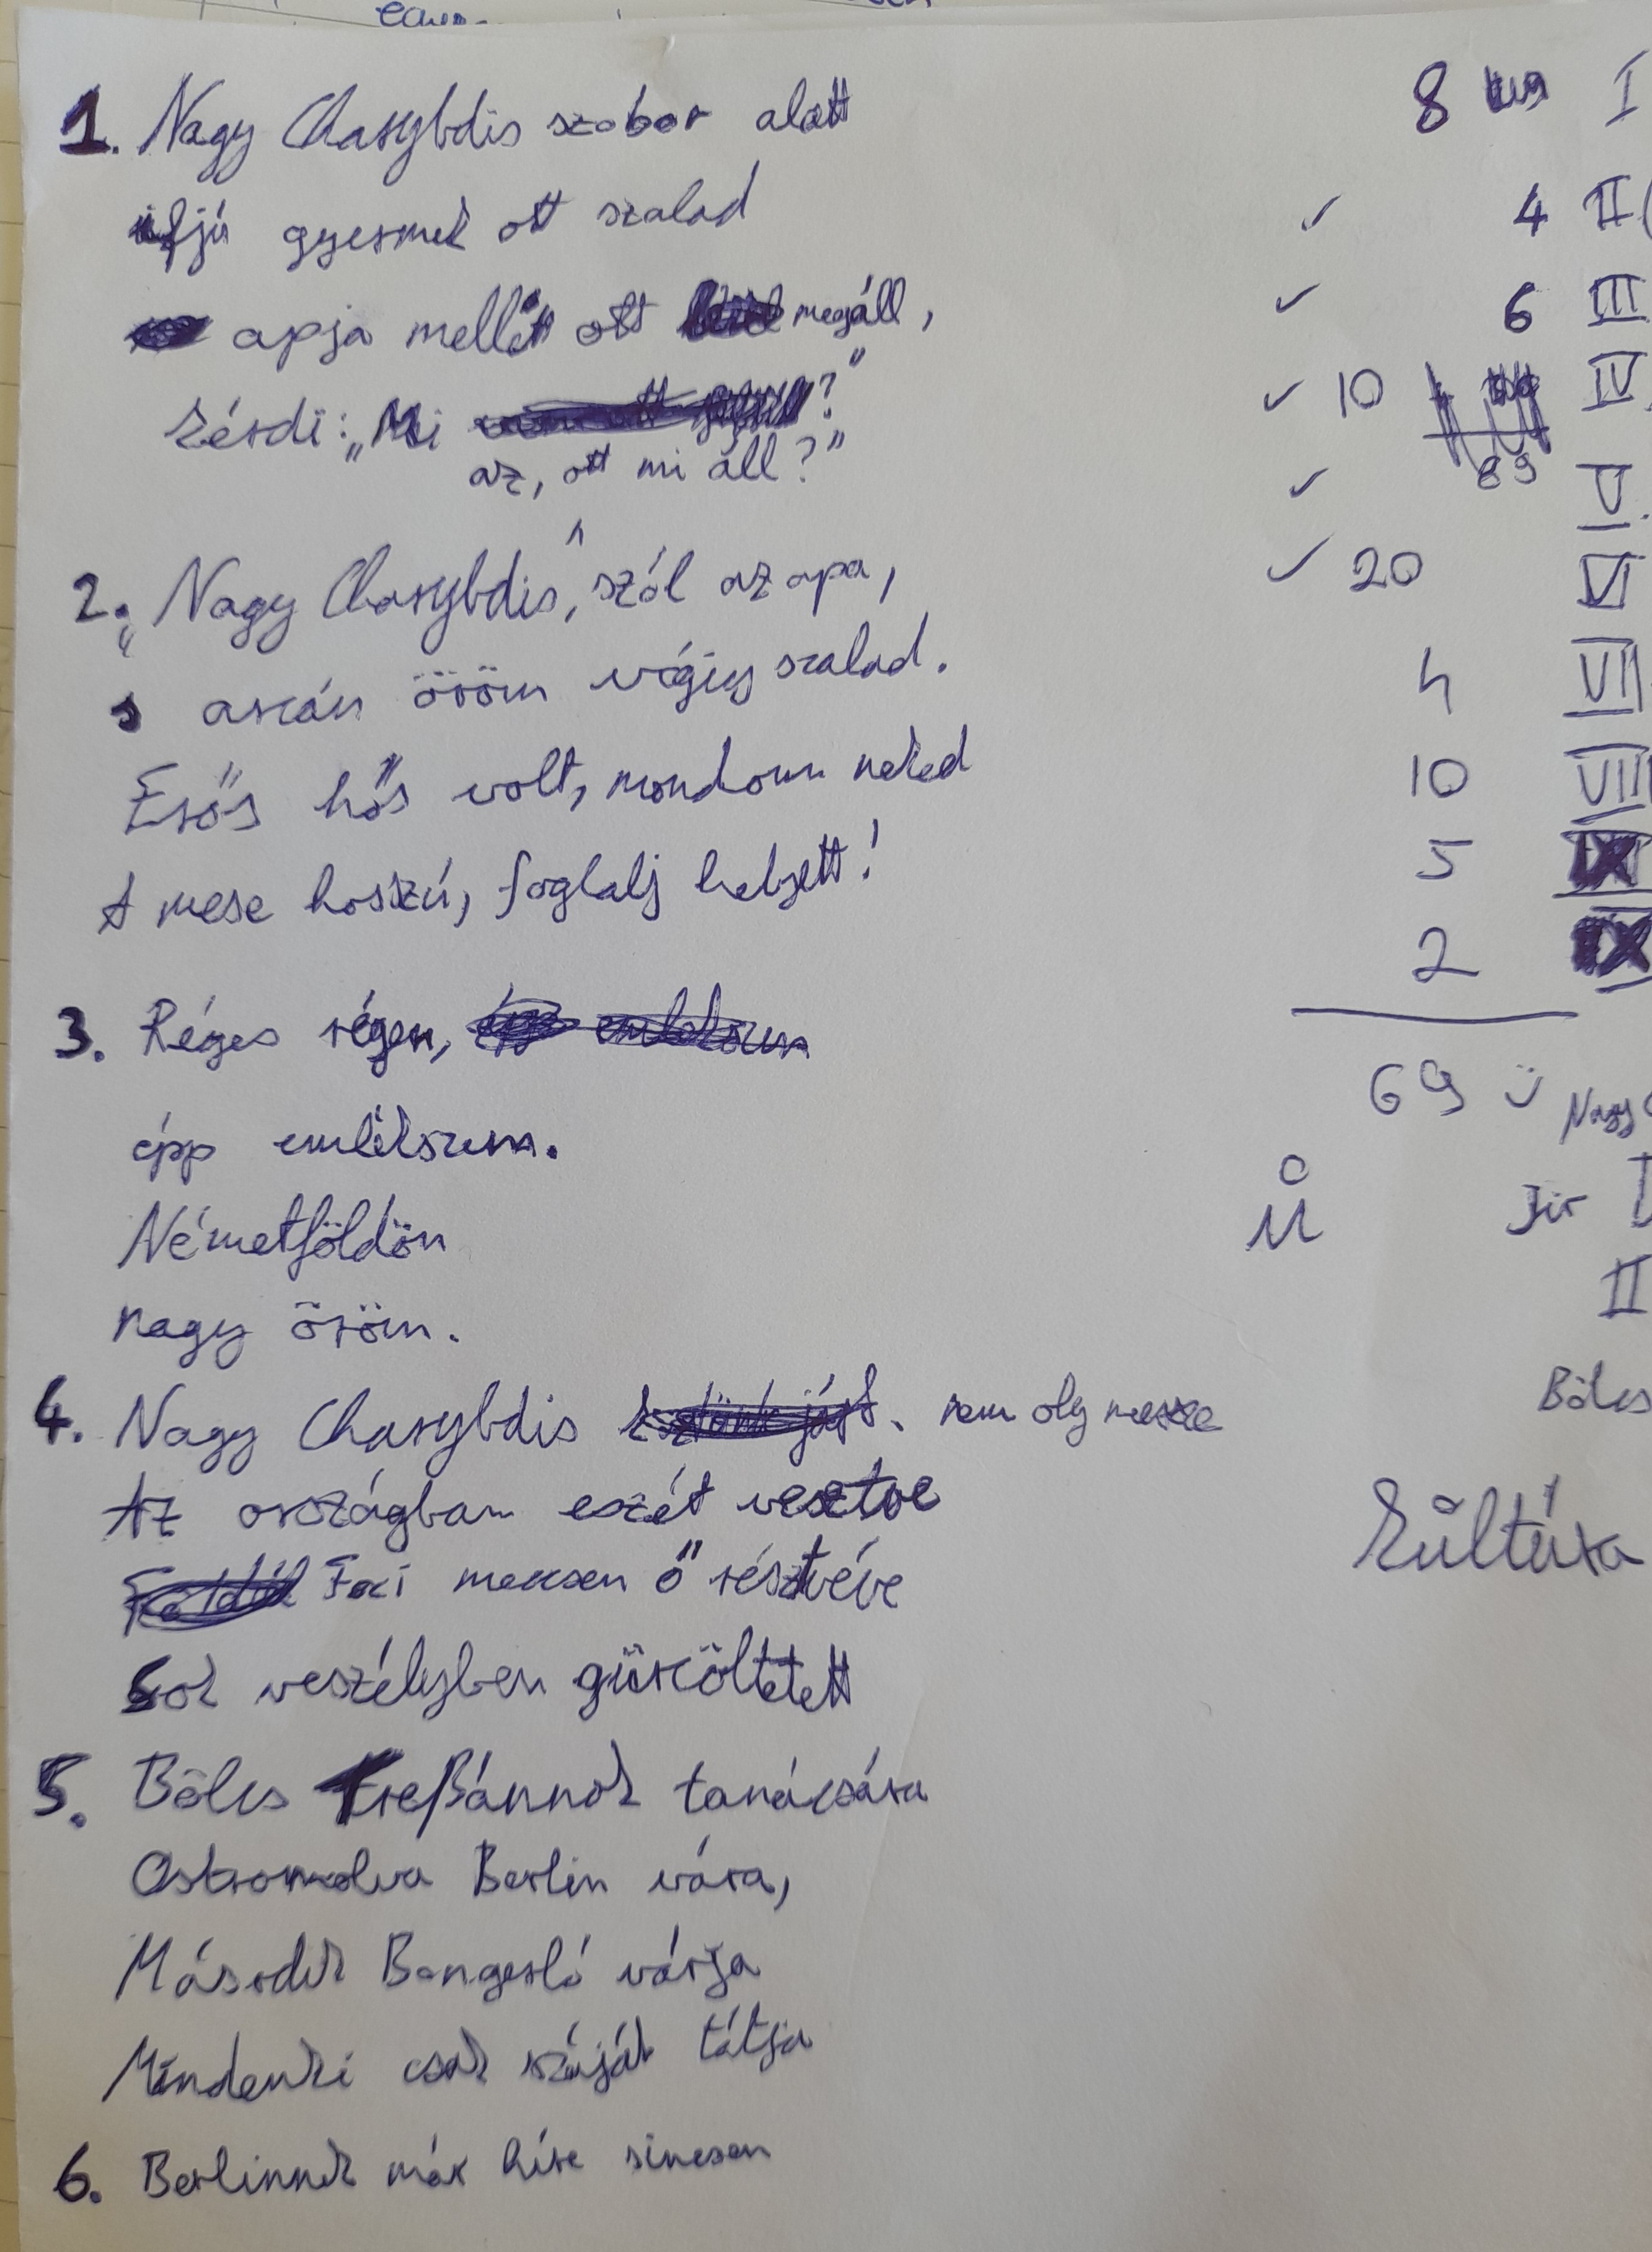 1. Nagy Charybdis szobor alatt
ifjú gyermek ott szalad
apja mellett ott megáll,
kérdi: „Mi
az, ott mi áll?”
2. „Nagy Charybdis”, szól az apa,
s arcán öröm végig szalad.
Erős hős volt, mondom neked
A mese hosszú, foglalj helyett!
3. Réges régen,
épp emlékszem.
Németföldön
nagy öröm.
4. Nagy Charybdis nem oly messze
Az országban eszét vesztve
Foci meccsen ő résztvéve
Sok veszélyben gürcöltetett
5. Bölcs Treßánnok tanácsára
Ostromolva Berlin vára,
Második Bangerló várja
Mindenki csak száját tátja
6. Berlinnek már híre sincsen
8 I
✓ 4 II
✓ 6 III
✓ 10 IV
✓ 89 V.
✓ 20 VI
4 VII
10 VIII
5 IX
2
69 Nagy
Bölcs
Kůltúra